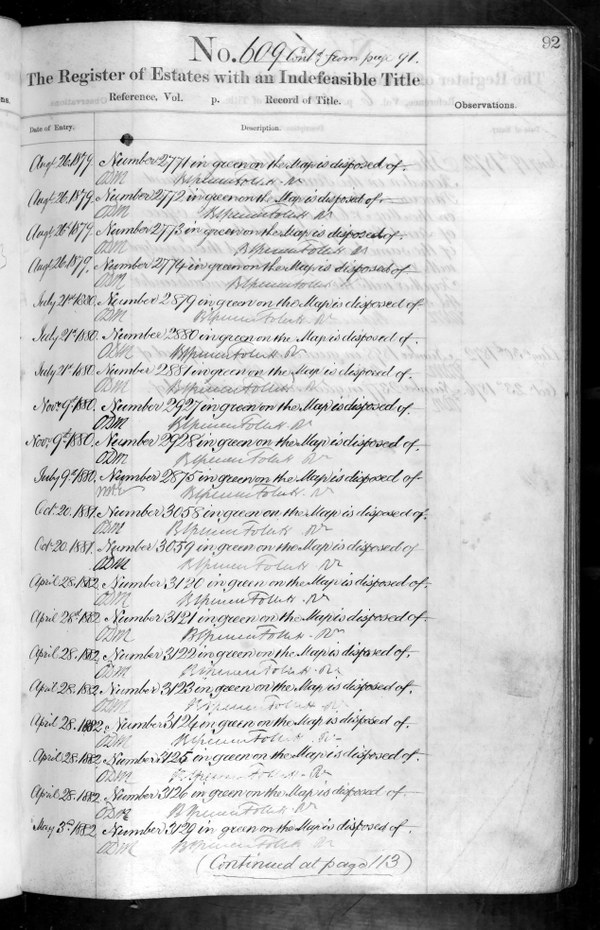 92
No. 609 Cont.d from page 91.
The Register of Estates with an Indefeasible Title
Reference, Vol. p. Record of Title.
Observations.
ns.
Date of Entry. Description.
Augt 26. 1879. Number 2771 in green on the Map is disposed of.
ODM B Spencer Follett Rr
Augt 26. 1879. Number 2772 in green on the Map is disposed of.
ODM B Spencer Follett Rr
Augt 26th 1879. Number 2773 in green on the Map is disposed of.
ODM B Spencer Follett Rr
Augt 26. 1879. Number 2774 in green on the Map is disposed of
ODM B Spencer Follett Rr
July 21st 1880. Number 2879 in green on the Map is disposed of
ODM B Spencer Follett Rr
July 21st 1880. Number 2880 in green on the Map is disposed of.
ODM B Spencer Follett Rr
July 21st 1880 Number 2881 in green on the Map is disposed of
ODM B Spencer Follett Rr
Novr 9th 1880. Number 2927 in green on the Map is disposed of.
ODM B Spencer Follett Rr
Novr 9th 1880. Number 2928 in green on the Map is disposed of.
ODM B Spencer Follett Rr
July 9th 1880. Number 2875 in green on the Map is disposed of
B Spencer Follett Rr
Oct. 20. 1881. Number 3058 in green on the Map is disposed of.
ODM B Spencer Follett Rr
Oct. 20. 1881. Number 3059 in green on the Map is disposed of.
ODM B Spencer Follett Rr
April 28. 1882 Number 3120 in green on the Map is disposed of.
ODM B Spencer Follett Rr
April 28th 1882 Number 3121 in green on the Map is disposed of.
ODM B Spencer Follett Rr
April 28. 1882. Number 3122 in green on the Map is disposed of.
ODM B Spencer Follett Rr
April 28. 1882 Number 3123 in green on the Map is disposed of.
ODM B Spencer Follett Rr
April 28. 1882. Number 3124 in green on the Map is disposed of.
ODM B Spencer Follett Rr
April 28. 1882 Number 3125 in green on the Map is disposed of.
ODM B Spencer Follett Rr
April 28. 1882 Number 3126 in green on the Map is disposed of
ODM B Spencer Follett Rr
May 3rd 1882 Number 3129 in green on the Map is disposed of.
ODM B Spencer Follett Rr
(Continued at page 113)